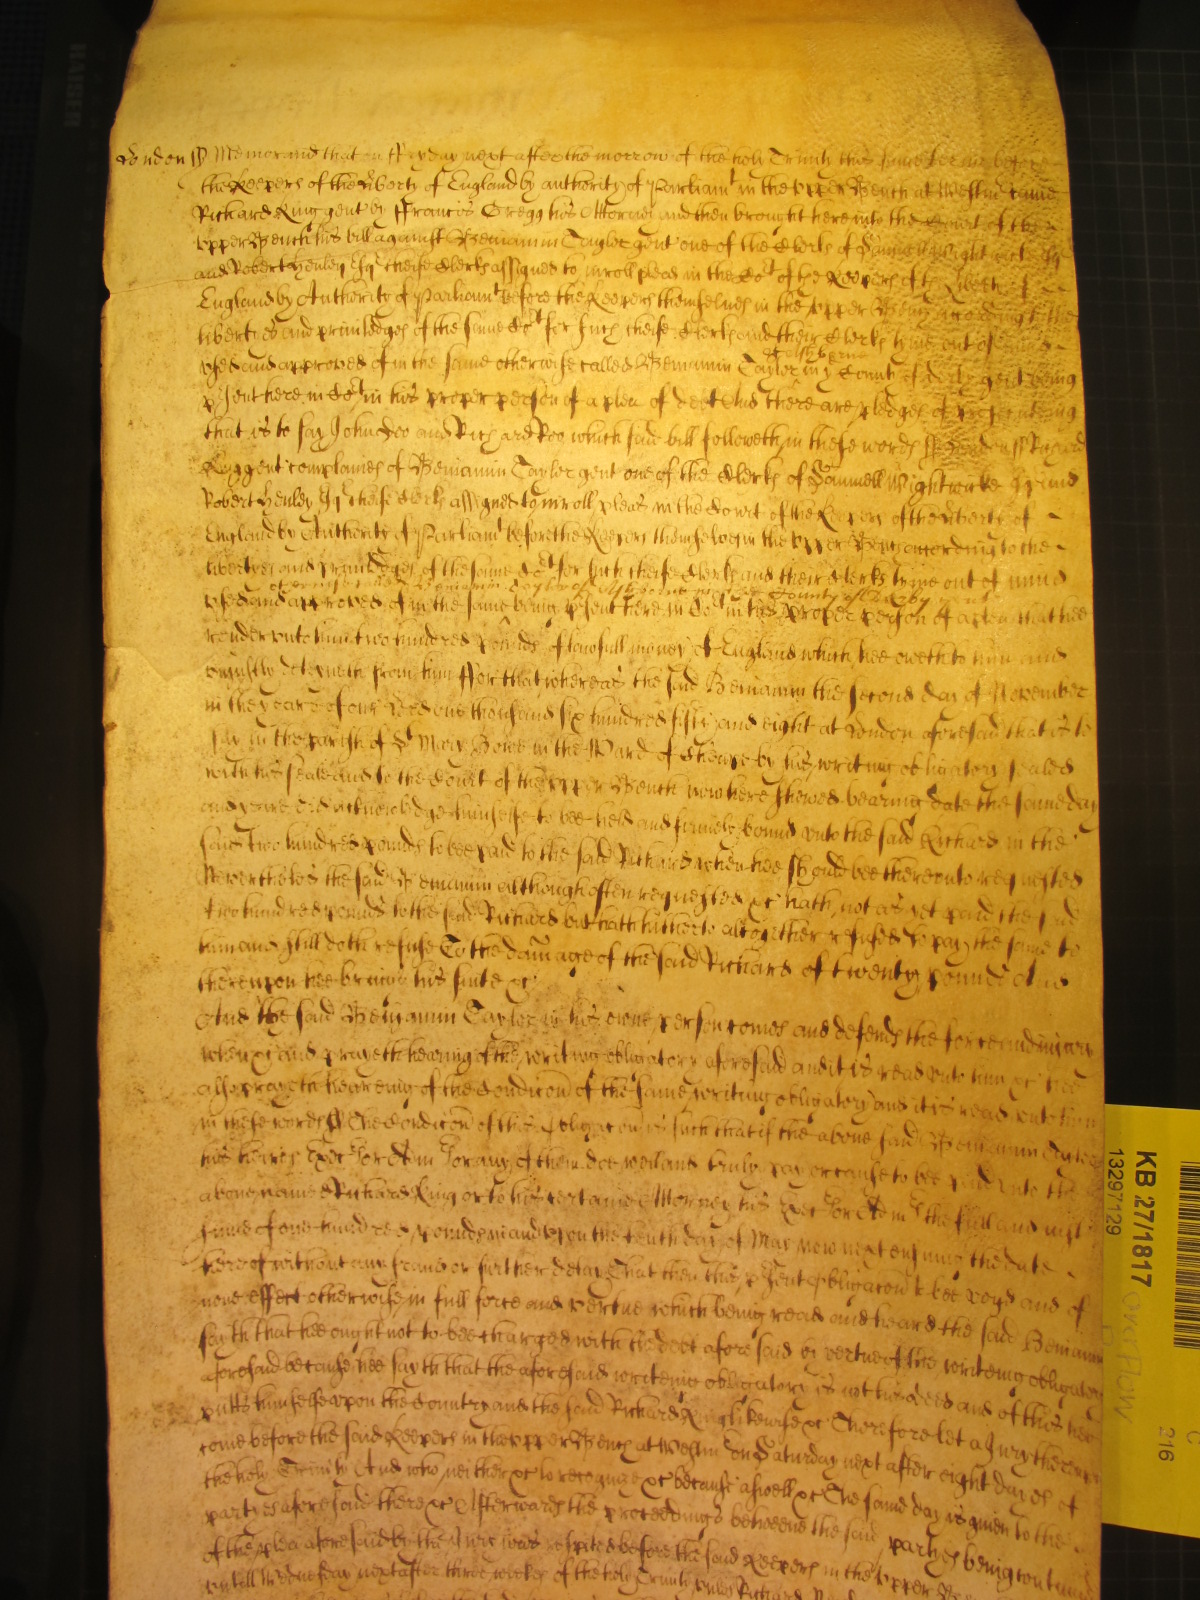 London ss Memorand that on Fryday next after the morrow of the holy Trinity this same terme before
the Keepers of the liberty of England by authority of Parliamt in the upper Bench at Westmr came
Richard King gent by Francis Gregg his Attorney and then brought here into the Court of the
upper Bench his bill against Beniamin Taylor gent one of the Clerks of Samuell Wightwicke
and Robert Henley Esqr cheife Clerks assigned to inroll pleas in the Cot of the Keepers of the liberty of
England by Authority of Parliamt before the Keepers themselves in the upper Bench according to the
liberties and priviledges of the same Cot for such cheife Clerks and their Clerks tyme out of mind
used and approved of in the same otherwise called Beniamin Taylor of Ashborne in ye County of Derby gent being
psent here in Cot in his proper person of a plea of debt And there are pledges of prosecuting
that is to say John Doo and Richard Roo which said bill followeth in these words ss London ss Richard
King gent complaines of Beniamin Taylor gent one of the Clerks of Samuell Wightwicke and
Robert Henley Esqr cheife Clerks assigned to inroll pleas in the Court of the Keepers of the liberty of
England by Authority of Parliamt before the Keepers themselves in the upper Bench according to the
liberties and priviledges of the same Cot for such cheife Clerks and their Clerks tyme out of mind
otherwise called Beniamin Taylor of Ashborne in the County of Darby gent
used and approved of in the same being psent here in Cot in his proper person of a plea that hee
render unto him two hundred pounds of lawfull money of England which hee oweth to him and
uniustly deteyneth from him For that whereas the said Beniamin the second day of November
in the yeare of our Lord one thousand six hundred fifty and eight at London aforesaid that is to
say in the parish of St Mary Bowe in the Ward of Cheape by his writing obligatory sealed
with his seale and to the Court of the upper Bench now here shewed bearing date the same day
and yeare did acknowledge himselfe to bee held and firmely bound unto the said Richard in the
said two hundred pounds to bee paid to the said Richard when hee should bee thereunto requested
Neverthelesse the said Beniamin although often requested &c hath not as yet paid the said
two hundred pounds to the said Richard but hath hitherto altogether refused to pay the same to
him and still doth refuse To the damage of the said Richard of twenty pounds And
thereupon hee brings his suite &c
And the said Beniamin Taylor in his owne person comes and defends the force and iniury
when &c and prayeth hearing of the writing obligatory aforesaid and it is read unto him &c hee
also prayeth heareing of the Condicon of the same writing obligatory and it is read unto him
in these words ss The Condicon of this obligacon is such that if the above said Beniamin Taylor
his heires Execrs or Admrs or any of them doe well and truly pay or cause to bee paid unto the
abovenamed Richard King or to his certaine Attorney his Execrs or Admrs the full and iust
summe of one hundred pounds in and upon the tenth day of May now next ensuing the date
hereof without any fraud or further delay That then this psent Obligacon to bee voyd and of
none effect otherwise in full force and vertue which being read and heard the said Beniamin
sayth that hee ought not to bee charged with the debt aforesaid by vertue of the writeing obligatory
aforesaid because hee sayth that the aforesaid writeing obligatory is not his deed and of this hee
putts himselfe upon the Country and the said Richard King likewise &c Therefore let a Jury thereupon
come before the said Keepers in the upper Bench at Westmr on Saturday next after eight dayes of
the holy Trinity And who neither &c to recognize &c because aswell &c The same day is given to the
partyes aforesaid there &c Afterwards the proceedings betweene the said partyes being continued
of the plea aforesaid by the Jury was respited before the said Keepers in the upper Bench
untill Wednesday next after three weekes of the holy Trinity unles Richard
KB 27/1817
13297129
overflow
C
216